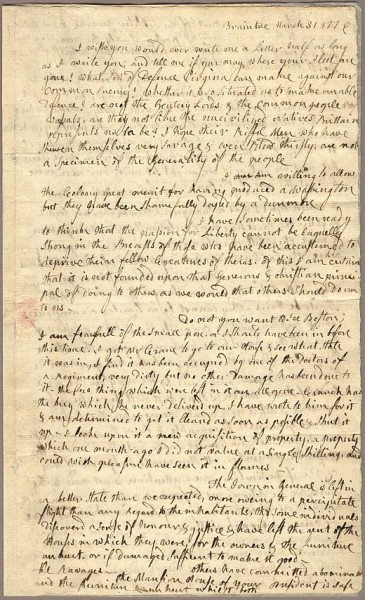 Braintree March 31 1776
I wish you would ever write me a Letter half as long
as I write you; and tell me if you may where your Fleet are
gone? What sort of Defence Virginia can make against our
common Enemy? Whether it is so situated as to make an able
Defence? are not the Gentery Lords and the common people
vassals, are they not like the uncivilized Natives Brittain
represents us to be? I hope their Riffel Men who have
shewen themselves very savage and even Blood thirsty; are not
a specimen of the Generality of the people
I am willing to allow
the Colony great merrit for having produced a Washington
but they have been shamefully duped by a Dunmore
I have sometimes been ready
to think that the passion for Liberty cannot be Eaquelly
Strong in the Breasts of those who have been accustomed to
deprive their fellow Creatures of theirs. of this I am certain
that it is not founded upon that Generous & christian princi
pal of doing to others as we would that others should do un
to us.
Do not you want to see Boston;
I am fearfull of the small pox, or I should have been in before
this time. I got Mr Crane to go to our House & see what state
it was in, I find it has been occupied by one of the Doctors of
a Regiment, very dirty but no other Damage has been done to
it. the few things which were left in it are all gone. Cranch has
the key which he never deliverd up, I have wrote to him for it
& am determined to get it cleand as soon as possible & shut it
up. I look upon it a new acquisition of property, a property
which one month ago I did not value at a single Shilling, and
could with pleasure have seen it in flames
The Town in General is left in
a better state than we expected, more oweing to a percipitate
flight than any regard to the inhabitants, tho some individuals
discoverd a sense of honour & justice & have left the rent of the
Houses in which they were, for the owners & the furniture
unhurt, or if damaged sufficent to make it good
Others have committed abominable
Ravages the Mansion House of your President is safe
and the furniture unhurt whilst both